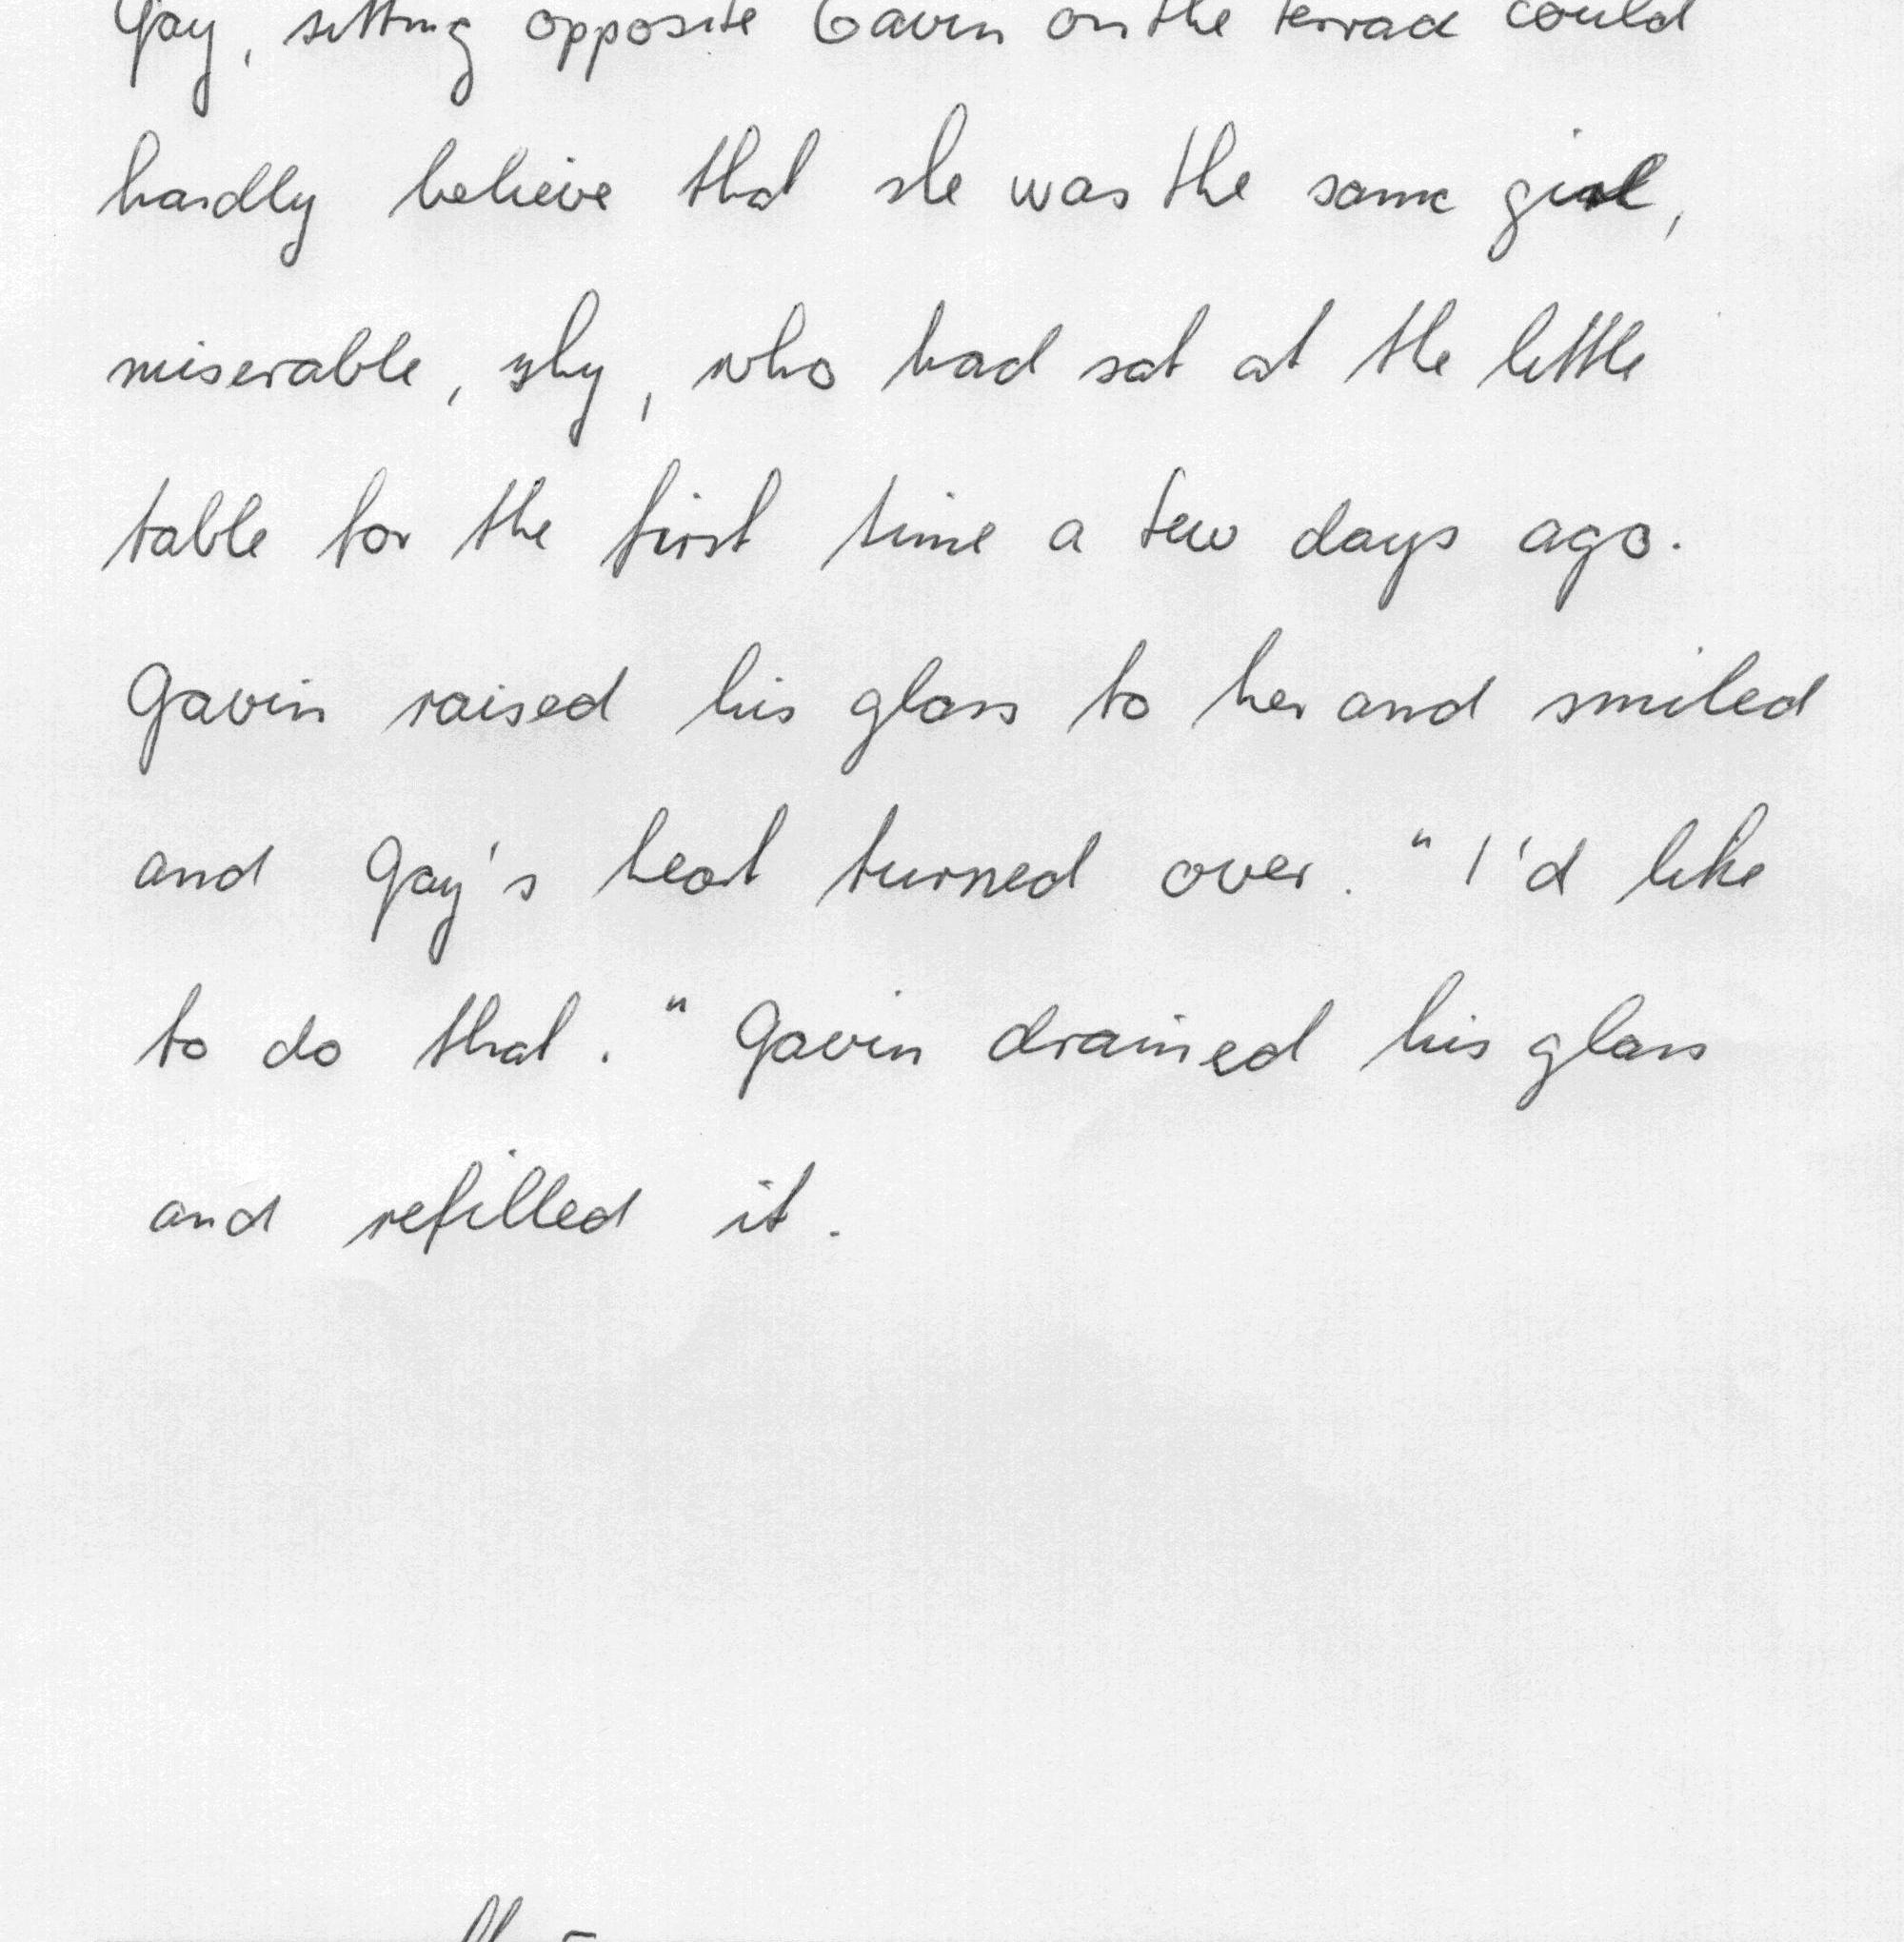 Gay, sitting opposite Gavin on the terrace could
hardly believe that she was the same girl,
miserable, shy, who had sat at the little
table for the first time a few days ago.
Gavin raised his glass to her and smiled
and Gay's heart turned over. " I'd like
to do that. " Gavin drained his glass
and refilled it.